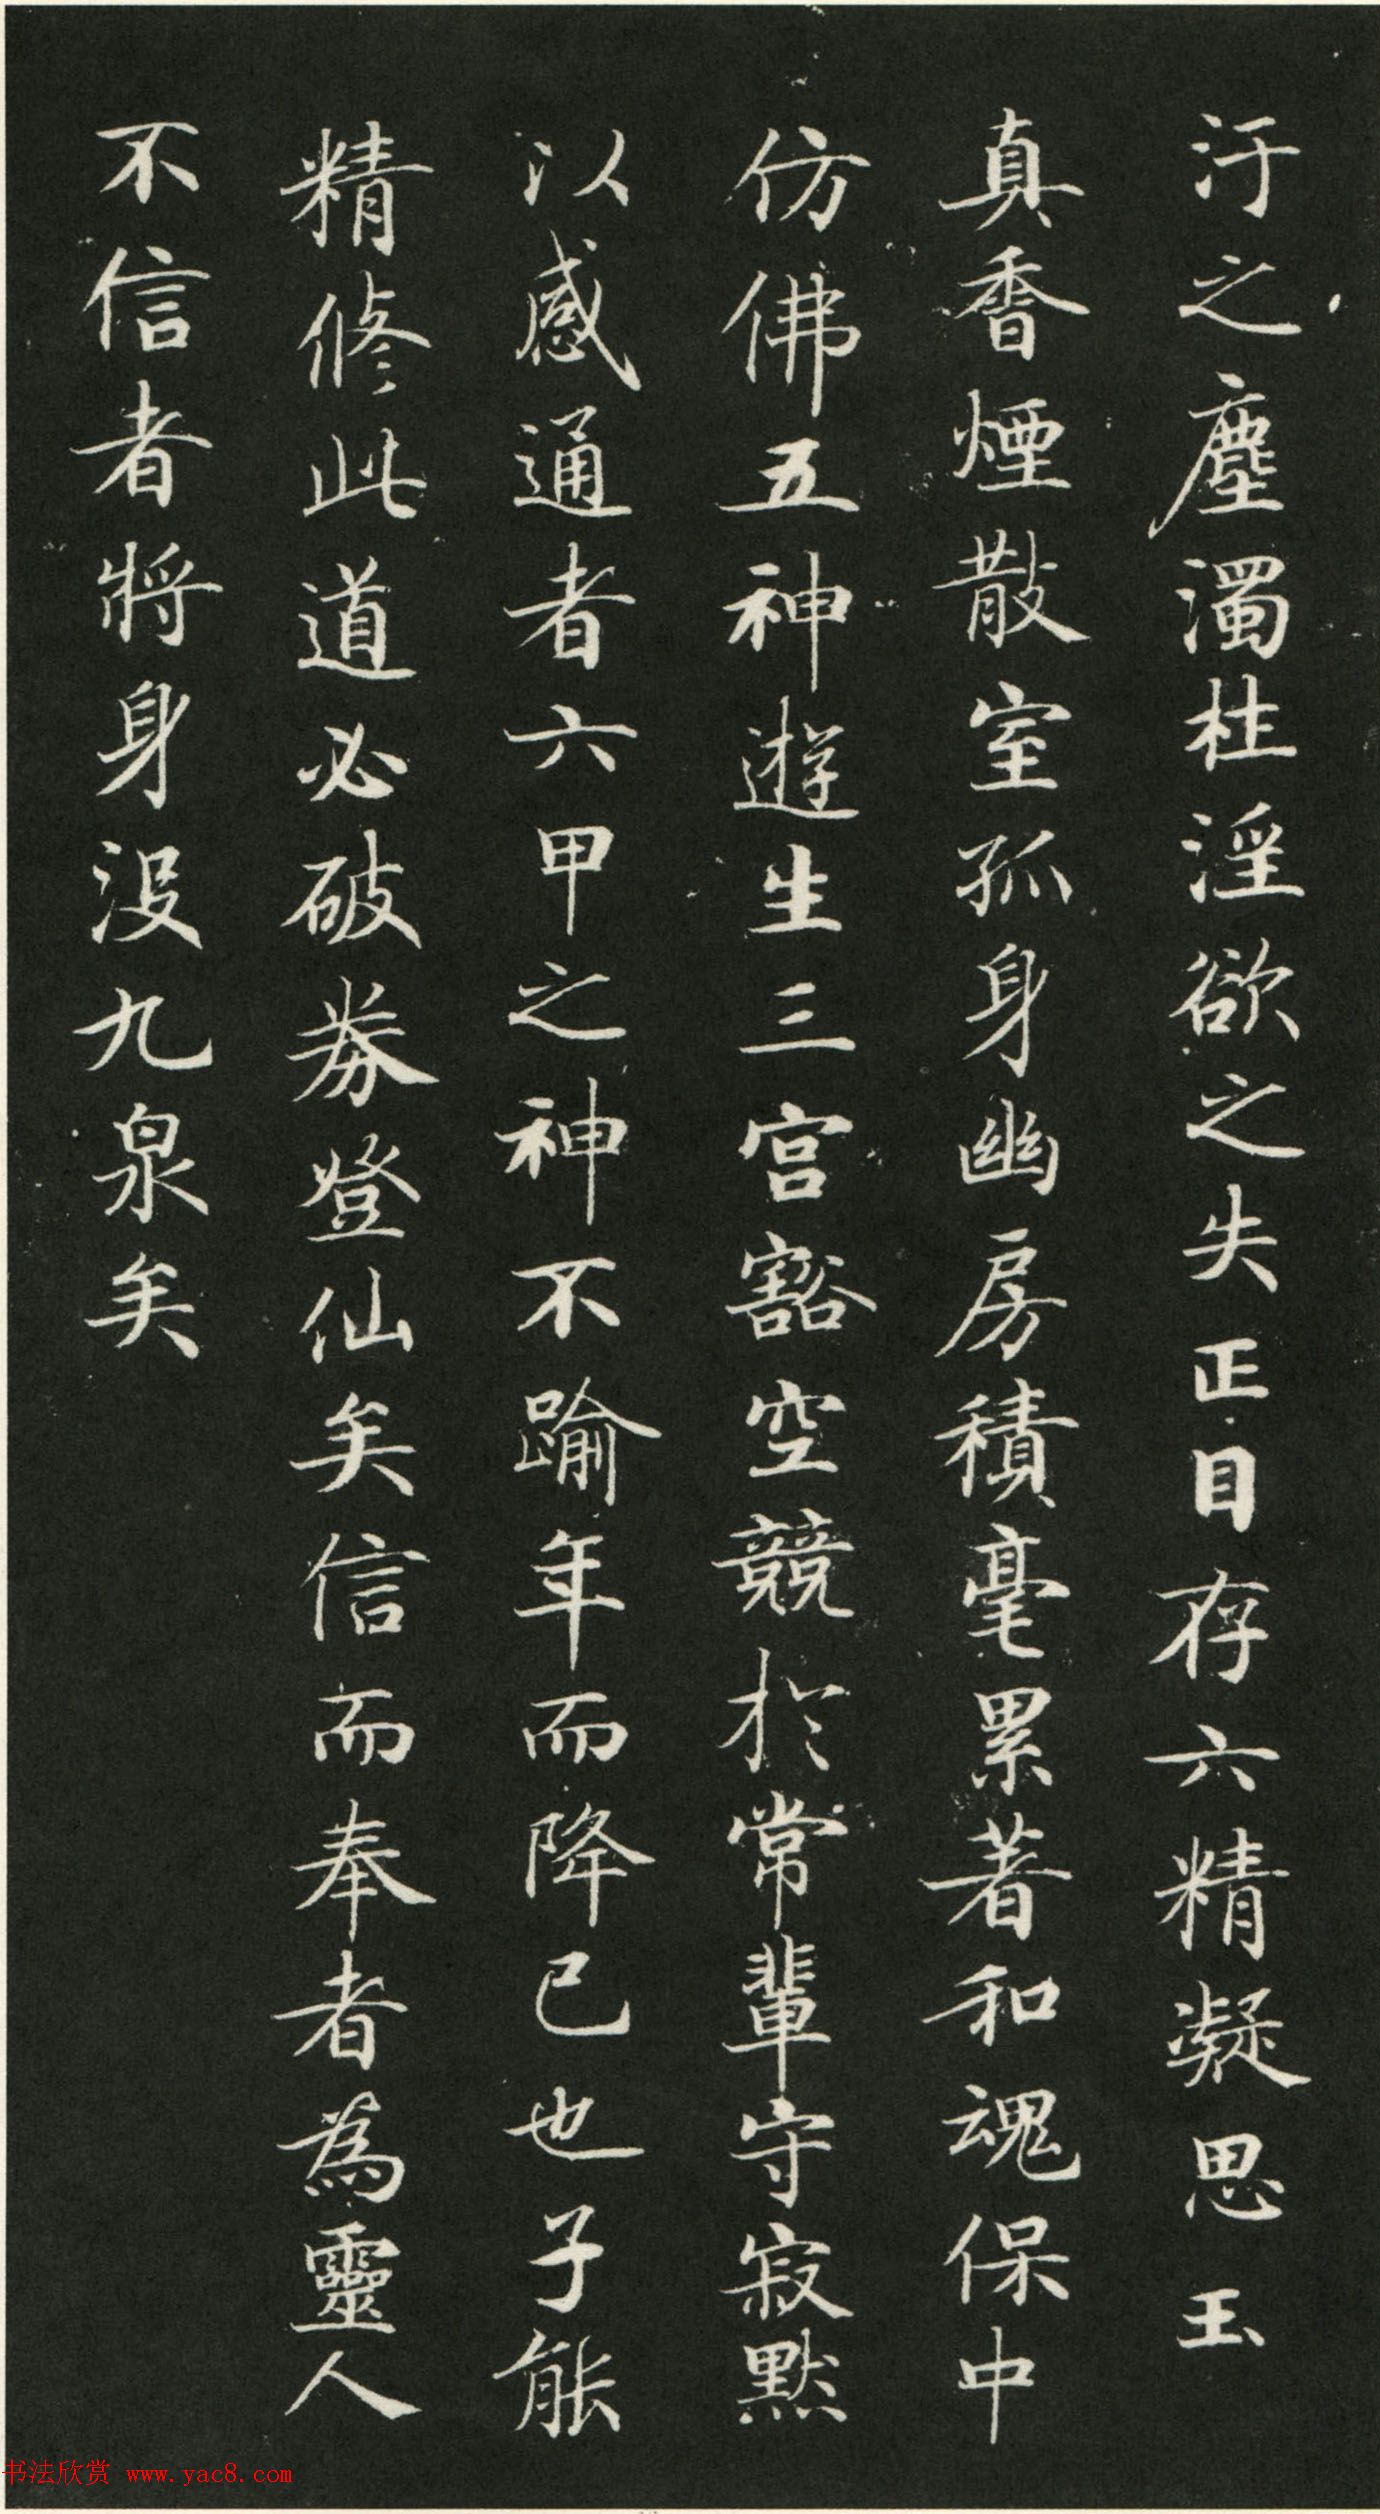 汙之塵濁杜淫欲之失正目存六精凝思玉
真香煙散室孤身幽房積毫累著和魂保中
仿佛五神遊生三宮豁空競於常輩守寂默
以感通者六甲之神不踰年而降已也子能
精修此道必破券登仙矣信而奉者為靈人
不信者將身沒九泉矣
书法欣赏 www.yac8.com